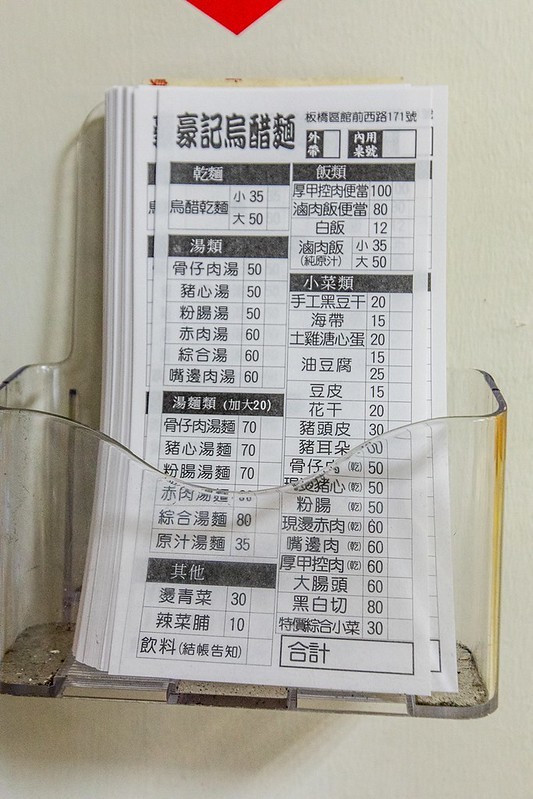 豪記烏醋麵
板橋區館前西路171號
外帶
內用桌號
乾麵
烏醋乾麵 小 35 大 50
湯類
骨仔肉湯 50
豬心湯 50
粉腸湯 50
赤肉湯 60
綜合湯 60
嘴邊肉湯 60
湯麵類 (加大20)
骨仔肉湯麵 70
豬心湯麵 70
粉腸湯麵 70
赤肉湯麵
綜合湯麵 80
原汁湯麵 35
其他
燙青菜 30
辣菜脯 10
飲料(結帳告知)
飯類
厚甲控肉便當 100
滷肉飯便當 80
白飯 12
滷肉飯 (純原汁) 小 35 大 50
小菜類
手工黑豆干 20
海帶 15
土雞溏心蛋 20
油豆腐 15 25
豆皮 15
花干 20
豬頭皮 30
豬耳朵
骨仔肉 (乾) 50
現燙豬心 (乾) 50
粉腸 (乾) 50
現燙赤肉 (乾) 60
嘴邊肉 (乾) 60
厚甲控肉 (乾) 60
大腸頭 60
黑白切 80
特價綜合小菜 30
合計